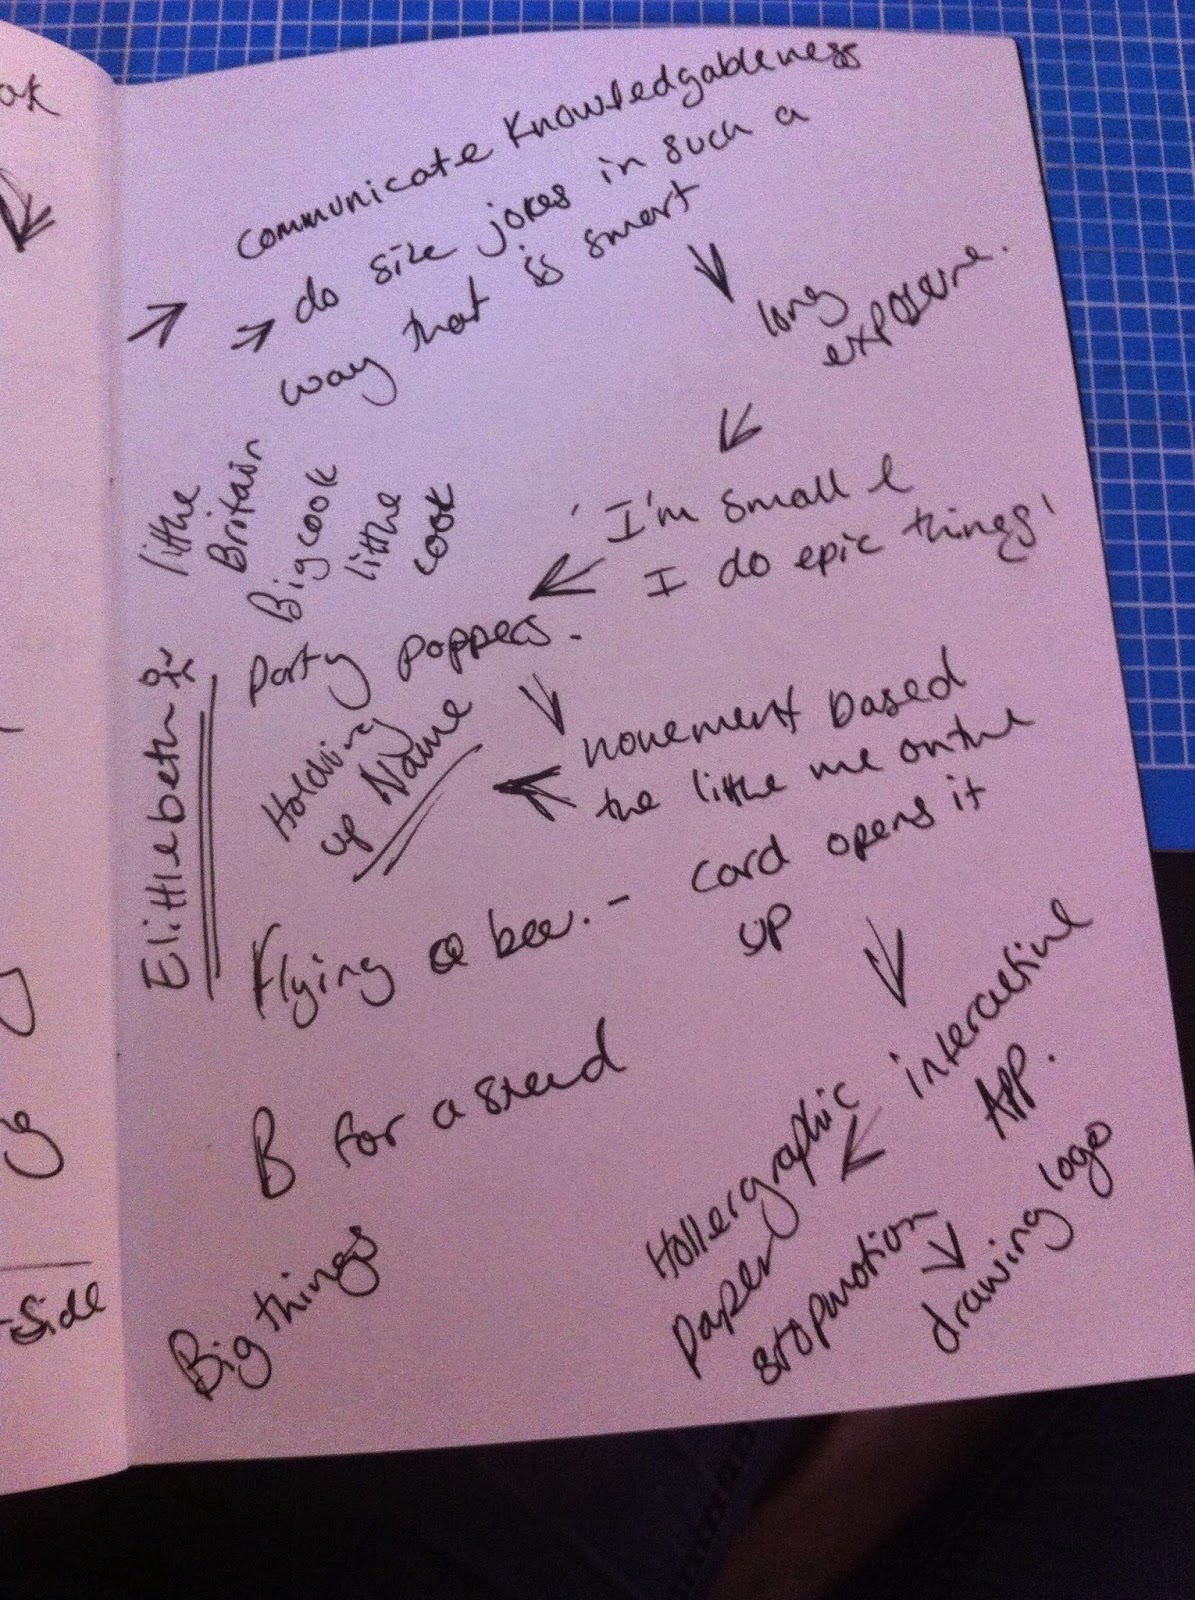 communicate knowledgableness
do size jokes in such a
way that is smart
long
exposure.
'I'm small &
I do epic things'
little
Britain
Big cook
little
cook
Party poppers.
Holding
up Name
Elittlebeth
movement based
the little me on the
card opens it
up
Flying a bee. -
B for a
Big things
interactive
App.
Hollergraphic
paper
stopmotion
drawing logo
-side